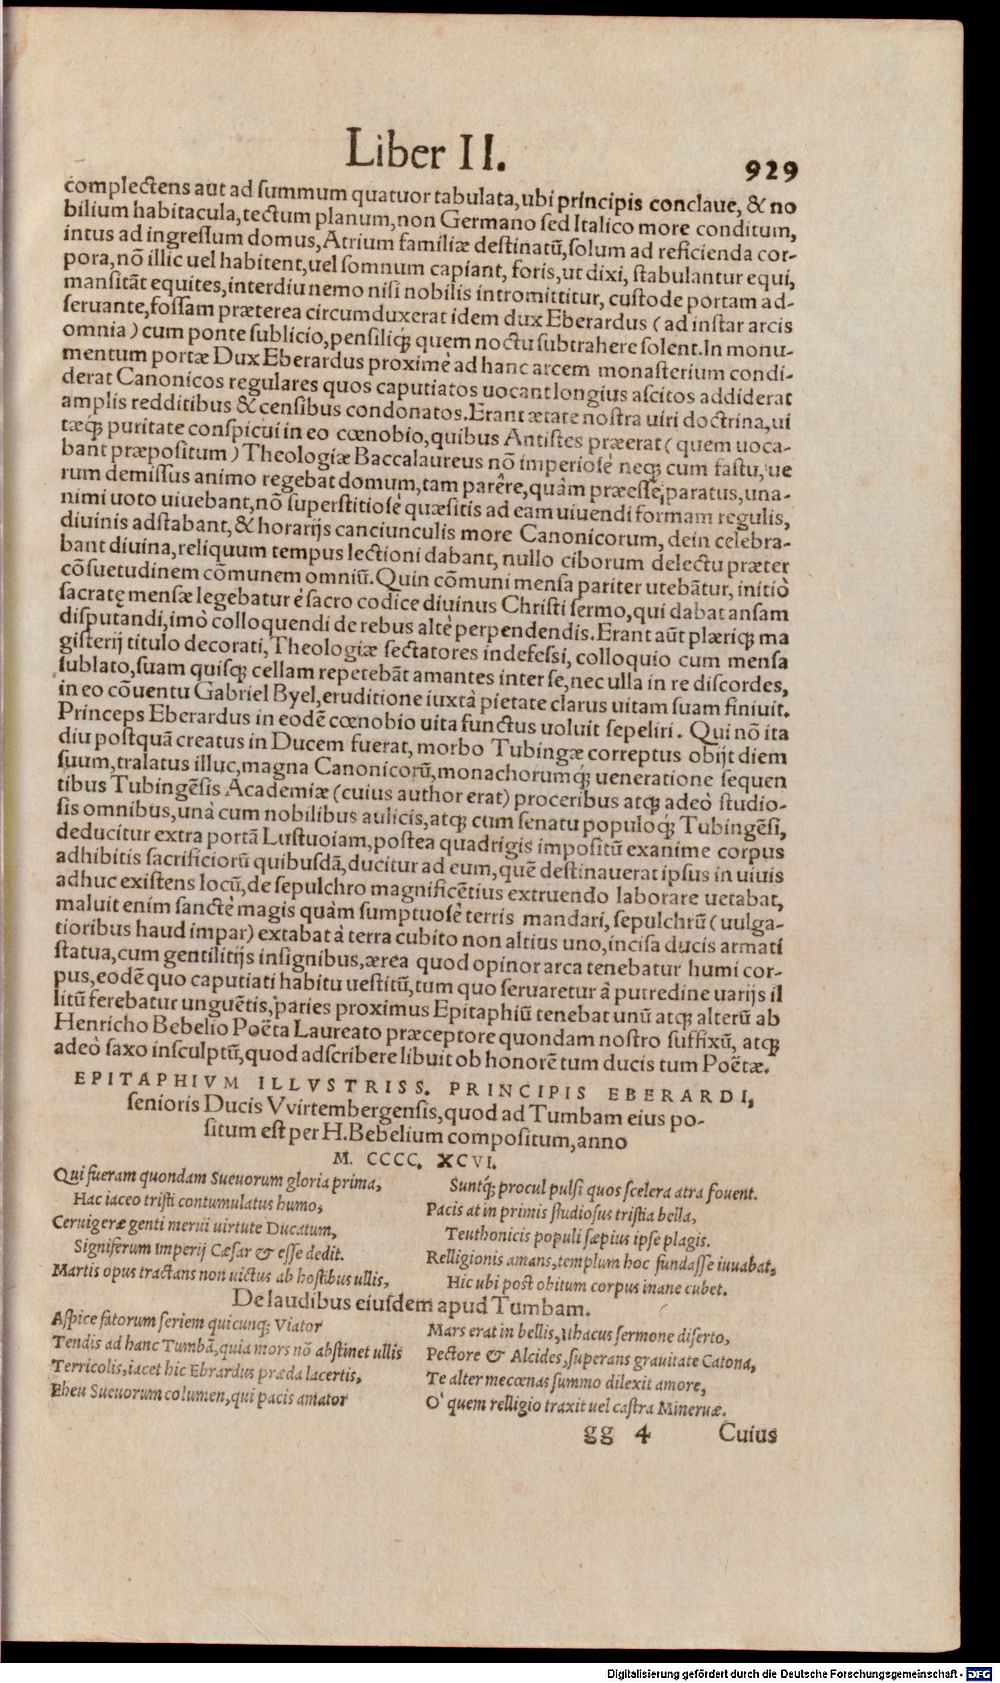 Liber II. 929
complectens aut ad summum quatuor tabulata, ubi principis conclaue, & no
bilium habitacula, tectum planum, non Germano sed Italico more conditum,
intus ad ingreſſum domus, Atrium familiæ deſtinatũ, ſolum ad reficienda cor-
pora, nõ illic uel habitent, uel ſomnum capiant, foris, ut dixi, ſtabulantur equi,
manſitãt equites, interdiu nemo niſi nobilis intromittitur, cuſtode portam ad-
ſeruante, foſſam præterea circumduxerat idem dux Eberardus (ad inſtar arcis
omnia) cum ponte ſublicio, penſiliq́; quem noctu ſubtrahere ſolent. In monu-
mentum portæ Dux Eberardus proximè ad hanc arcem monaſterium condi-
derat Canonicos regulares quos caputiatos uocant longius aſcitos addiderat
amplis redditibus & cenſibus condonatos. Erant ætate noſtra uiri doctrina, ui
tæq́; puritate conſpicui in eo cœnobio, quibus Antiſtes præerat (quem uoca-
bant præpoſitum) Theologiæ Baccalaureus nõ imperioſè neq; cum faſtu, ue
rum demiſſus animo regebat domum, tam parêre, quàm præeſſe, paratus, una-
nimi uoto uiuebant, nõ ſuperſtitioſè quæſitis ad eam uiuendi formam regulis,
diuinis adſtabant, & horarijs canciunculis more Canonicorum, dein celebra-
bant diuina, reliquum tempus lectioni dabant, nullo ciborum delectu præter
cõſuetudinem cõmunem omniũ. Quin cõmuni menſa pariter utebãtur, initiò
ſacratę menſæ legebatur è ſacro codice diuinus Chriſti ſermo, qui dabat anſam
diſputandi, imò colloquendi de rebus altè perpendendis. Erant aũt plæriq; ma
giſterij titulo decorati, Theologiæ ſectatores indefeſsi, colloquio cum menſa
ſublato, ſuam quiſq; cellam repetebãt amantes inter ſe, nec ulla in re diſcordes,
in eo cõuentu Gabriel Byel, eruditione iuxtà pietate clarus uitam ſuam finiuit.
Princeps Eberardus in eodẽ cœnobio uita functus uoluit ſepeliri. Qui nõ ita
diu poſtquã creatus in Ducem fuerat, morbo Tubingæ correptus obijt diem
ſuum, tralatus illuc, magna Canonicorũ, monachorumq́; ueneratione ſequen
tibus Tubingẽſis Academiæ (cuius author erat) proceribus atq; adeò ſtudio-
ſis omnibus, unà cum nobilibus aulicis, atq; cum ſenatu populoq́; Tubingẽſi,
deducitur extra portã Luſtuoiam, poſtea quadrigis impoſitũ exanime corpus
adhibitis ſacrificiorũ quibuſdã, ducitur ad eum, quẽ deſtinauerat ipſus in uiuis
adhuc exiſtens locũ, de ſepulchro magnificẽtius extruendo laborare uetabat,
maluit enim ſanctè magis quàm ſumptuoſè terris mandari, ſepulchrũ (uulga-
tioribus haud impar) extabat à terra cubito non altius uno, inciſa ducis armati
ſtatua, cum gentilitijs inſignibus, ærea quod opinor arca tenebatur humi cor-
pus, eodẽ quo caputiati habitu ueſtitũ, tum quo ſeruaretur à putredine uarijs il
litũ ferebatur unguẽtis, paries proximus Epitaphiũ tenebat unũ atq; alterũ ab
Henricho Bebelio Poëta Laureato præceptore quondam noſtro ſuffixũ, atq;
adeò ſaxo inſculptũ, quod adſcribere libuit ob honorẽ tum ducis tum Poëtæ.
EPITAPHIVM ILLVSTRISS. PRINCIPIS EBERARDI,
ſenioris Ducis Vvirtembergenſis, quod ad Tumbam eius po-
ſitum eſt per H. Bebelium compoſitum, anno
M. CCCC. XCVI.
Qui fueram quondam Sueuorum gloria prima,
Hac iaceo triſti contumulatus humo,
Ceruigeræ genti merui uirtute Ducatum,
Signiferum Imperij Cæſar & eſſe dedit.
Martis opus tractans non uictus ab hoſtibus ullis,
Suntq́; procul pulſi quos ſcelera atra fouent.
Pacis at in primis ſtudioſus triſtia bella,
Teuthonicis populi ſæpius ipſe plagis.
Relligionis amans, templum hoc fundaſſe iuuabat,
Hic ubi poſt obitum corpus inane cubet.
De laudibus eiuſdem apud Tumbam.
Aſpice fatorum ſeriem quicunq; Viator
Tendis ad hanc Tumbã, quia mors nõ abſtinet ullis
Terricolis, iacet hic Ebrardus præda lacertis,
Eheu Sueuorum columen, qui pacis amator
Mars erat in bellis, Ithacus ſermone diſerto,
Pectore & Alcides, ſuperans grauitate Catona,
Te alter mecœnas ſummo dilexit amore,
O' quem relligio traxit uel caſtra Mineruæ.
gg 4 Cuius
Digitalisierung gefördert durch die Deutsche Forschungsgemeinschaft - DFG